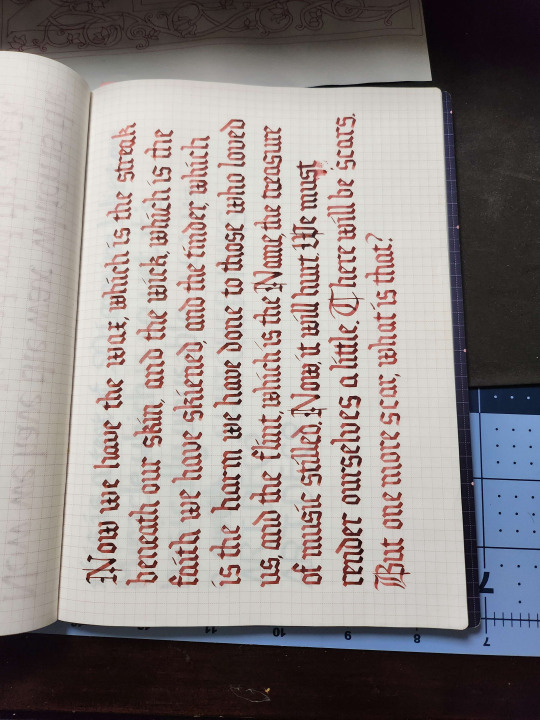 Now we have the wax, which is the streak
beneath our skin, and the wick, which is the
faith we have skiened, and the tinder, which
is the harm we have done to those who loved
us, and the flint, which is the Name, the treasure
of music stilled. Now it will hurt. We must
render ourselves a little. There will be scars.
But one more scar, what is that?
11
10
9
8
7
7